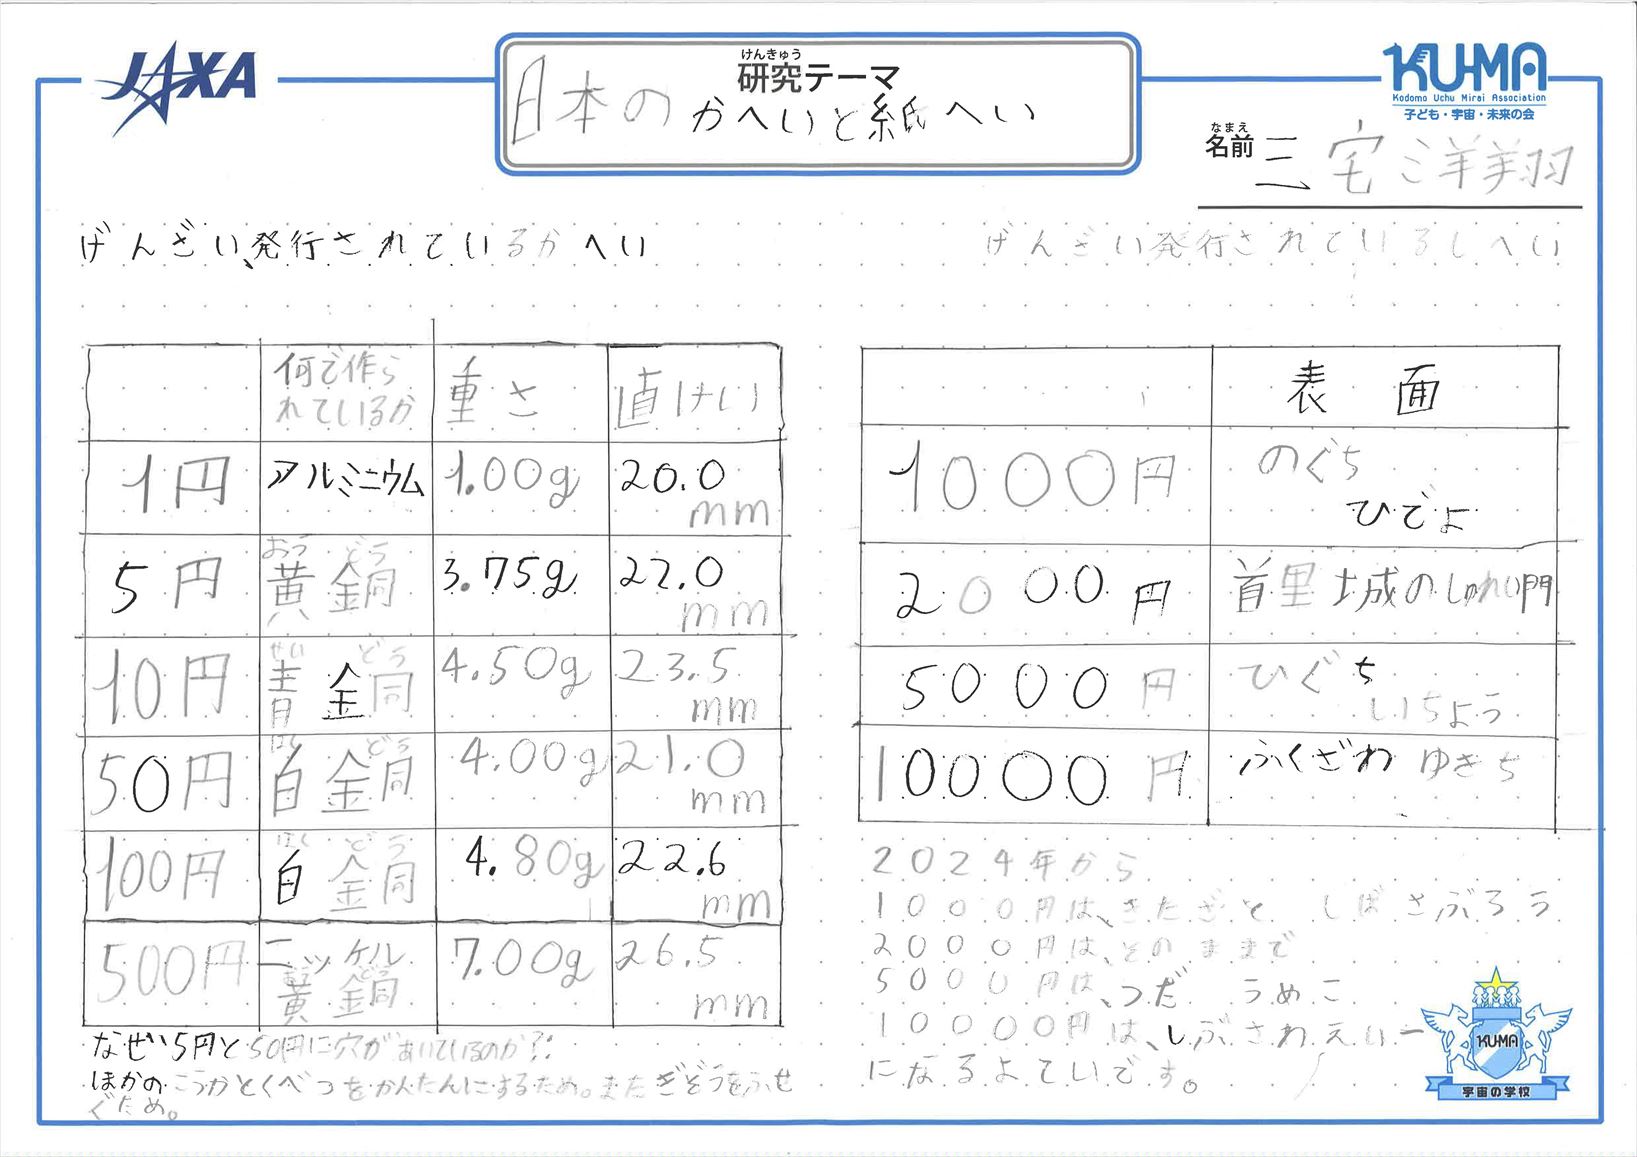 JAXA
けんきゅう
研究テーマ
日本のかへいと紙へい
KU-MA
Kodomo Uchu Mirai Association
子ども・宇宙・未来の会
なまえ
名前 三宅洋翔
げんざい、発行されているかへい
何で作られているか 重さ 直けい
1円 アルミニウム 1.00g 20.0mm
おう どう
5円 黄銅 3.75g 22.0mm
せい どう
10円 青銅 4.50g 23.5mm
はく どう
50円 白銅 4.00g 21.0mm
はく どう
100円 白銅 4.80g 22.6mm
500円 ニッケル黄銅 7.00g 26.5mm
おう どう
なぜ、5円と50円に穴があいているのか?:
ほかのこうかとくべつをかんたんにするため。またぎぞうをふせ
ぐため。
げんざい発行されているしへい
表面
1000円 のぐち
ひでよ
2000円 首里城のしゅれい門
5000円 ひぐち
いちよう
10000円 ふくざわ ゆきち
2024年から
1000円は、きたざと しばさぶろう
2000円は、そのままで
5000円は、つだ うめこ
10000円は、しぶさわえいー
になるよていです。
KU-MA
宇宙の学校